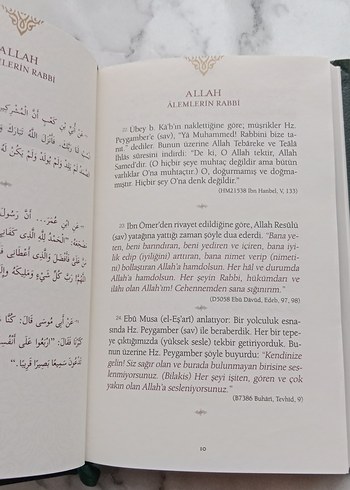 ALLAH
ÂLEMLERİN RABBİ
عَنْ أُبَيِّ بْنِ كَعْبٍ أَنَّ الْمُشْرِكِينَ
عَنِ ابْنِ عُمَرَ... أَنَّ رَسُولَ
ALLAH
ÂLEMLERİN RABBİ
22 Übey b. Kâ'b'ın naklettiğine göre; müşrikler Hz.
Peygamber'e (sav), "Yâ Muhammed! Rabbini bize ta-
nıt." dediler. Bunun üzerine Allah Tebâreke ve Teâlâ
İhlâs sûresini indirdi: "De ki, O Allah tektir, Allah
Samed'dir. (O hiçbir şeye muhtaç değildir ama bütün
varlıklar O'na muhtaçtır.) O, doğurmamış ve doğma-
mıştır. Hiçbir şey O'na denk değildir."
(HM21538 İbn Hanbel, V, 133)
23 İbn Ömer'den rivayet edildiğine göre, Allah Resûlü
(sav) yatağına yattığı zaman şöyle dua ederdi. "Bana ye-
ten, beni barındıran, beni yediren ve içiren, bana iyi-
lik edip (iyiliğini) artıran, bana nimet verip (nimeti-
ni) bollaştıran Allah'a hamdolsun. Her hâl ve durumda
Allah'a hamdolsun. Her şeyin Rabbi, hükümdarı ve
ilâhı olan Allah'ım! Cehennemden sana sığınırım."
(D5058 Ebû Dâvûd, Edeb, 97, 98)
24 Ebû Musa (el-Eş'arî) anlatıyor: Bir yolculuk esna-
sında Hz. Peygamber (sav) ile beraberdik. Her bir tepe-
ye çıktığımızda (yüksek sesle) tekbir getiriyorduk. Bu-
nun üzerine Hz. Peygamber şöyle buyurdu: "Kendinize
gelin! Siz sağır olan ve burada bulunmayan birisine ses-
lenmiyorsunuz. (Bilakis) Her şeyi işiten, gören ve çok
yakın olan Allah'a sesleniyorsunuz."
(B7386 Buhârî, Tevhîd, 9)
10